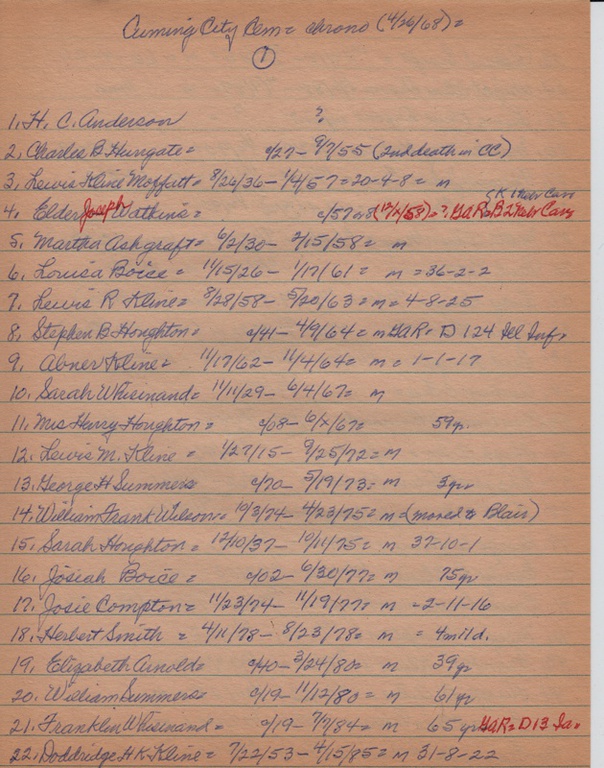 Cuming City Cem= chrono (4/26/68)=
1
1. H. C. Anderson ?
2. Charles B Hungate= c/27- 9/7/55 (2nd death in CC)
3. Lewis Kline Moffatt= 8/26/36- 1/4/57=20-4-8= m
(K 1 Nebr Cav
4. Elder Joseph Watkins= c/57 or 8 (12/x/58)=? GaR=B 2 Nebr Cav
5. Martha Ashgraft= 6/2/30- 2/15/58= m
6. Louisa Boice= 11/15/26- 1/17/61= m =36-2-2
7. Lewis R Kline= 8/28/58- 5/20/63=m=4-8-25
8. Stephen B Houghton= c/41- 4/9/64=m GaR= D 124 Ill Inf.
9. Abner Kline= 11/17/62- 11/4/64= m = 1-1-17
10. Sarah Whisinand= 11/11/29- 6/4/67= m
11. Mrs Harry Houghton= c/08- 6/x/67= 59y.
12. Lewis M. Kline= 1/27/15- 9/25/72= m
13. George H Summers c/70- 5/19/73= m 3yr
14. William Frank Wilson= 10/3/74- 4/23/75=m=(moved to Blair)
15. Sarah Houghton= 12/10/37- 10/11/75= m 37-10-1
16. Josiah Boice= c/02- 6/30/77= m 75yr
17. Josie Compton= 11/23/74- 11/19/77= m =2-11-16
18. Herbert Smith = 4/11/78- 8/23/78= m = 4m11d.
19. Elizabeth Arnold= c/40- 3/24/80= m 39yr
20. William Summers= c/19- 11/12/80= m 61yr
21. Franklin Whisinand= c/19- 7/7/84= m 65 yr GaR= D 13 Ia=
22. Doddridge H K Kline= 7/22/53- 4/15/85= m 31-8-22